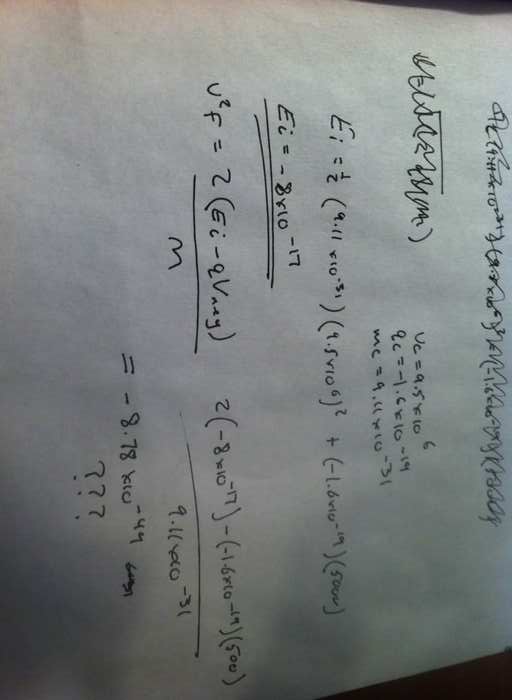 Ve = 9.5x10⁶
qe = -1.6x10⁻¹⁹
me = 9.11x10⁻³¹
Ei = ½ (9.11x10⁻³¹)(9.5x10⁶)² + (-1.6x10⁻¹⁹)(500V)
Ei = -8x10⁻¹⁷
V²F = 2(Ei - qVneg)
m
2(-8x10⁻¹⁷) - (-1.6x10⁻¹⁹)(500)
9.11x10⁻³¹
= -8.78x10⁻⁴⁴
???